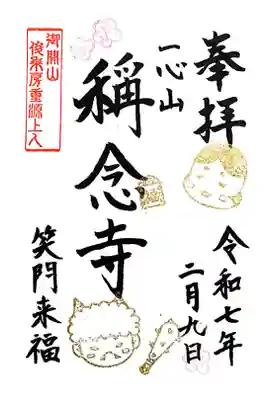 奉拝
令和七年
二月九日
一心山
稱念寺
笑門来福
御開山
俊乗房重源上人